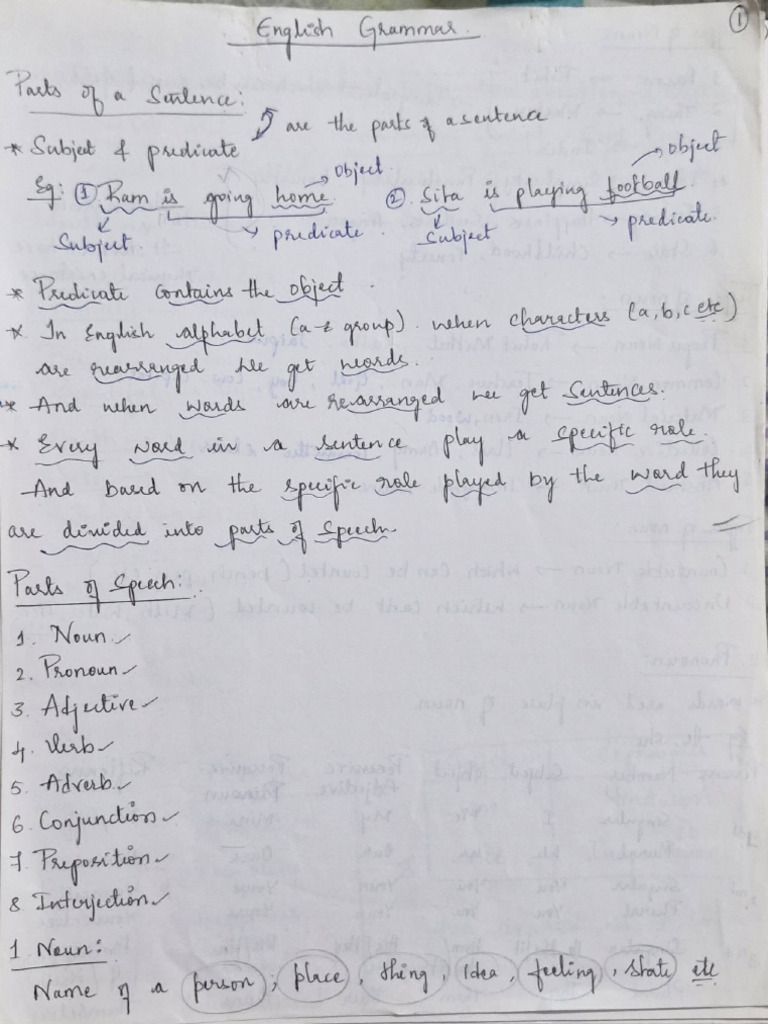 ①
English Grammar.
Parts of a Sentence:
are the parts of a sentence
* Subject & predicate
Eg: ① Ram is going home object ② Sita is playing football object
Subject predicate Subject predicate.
* Predicate contains the object.
* In English alphabet (a-z group) when characters (a, b, c etc)
are rearranged we get words.
* And when words are rearranged we get Sentences.
* Every word in a sentence play a specific role.
And based on the specific role played by the word they
are divided into parts of Speech
Parts of Speech:
1. Noun
2. Pronoun
3. Adjective
4. Verb
5. Adverb
6. Conjunction
7. Preposition
8 Interjection
1. Noun:
Name of a person, place, thing, Idea, feeling, state etc